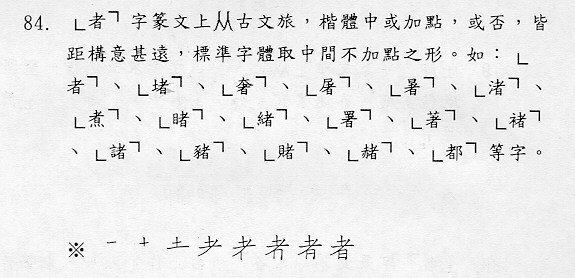 84. 「者」字篆文上从古文旅，楷體中或加點，或否，皆
距構意甚遠，標準字體取中間不加點之形。如：「
者」、「堵」、「奢」、「屠」、「暑」、「渚」、
「煮」、「睹」、「緒」、「署」、「著」、「褚」
、「諸」、「豬」、「賭」、「赭」、「都」等字。
※ 一 十 土 耂 者 者